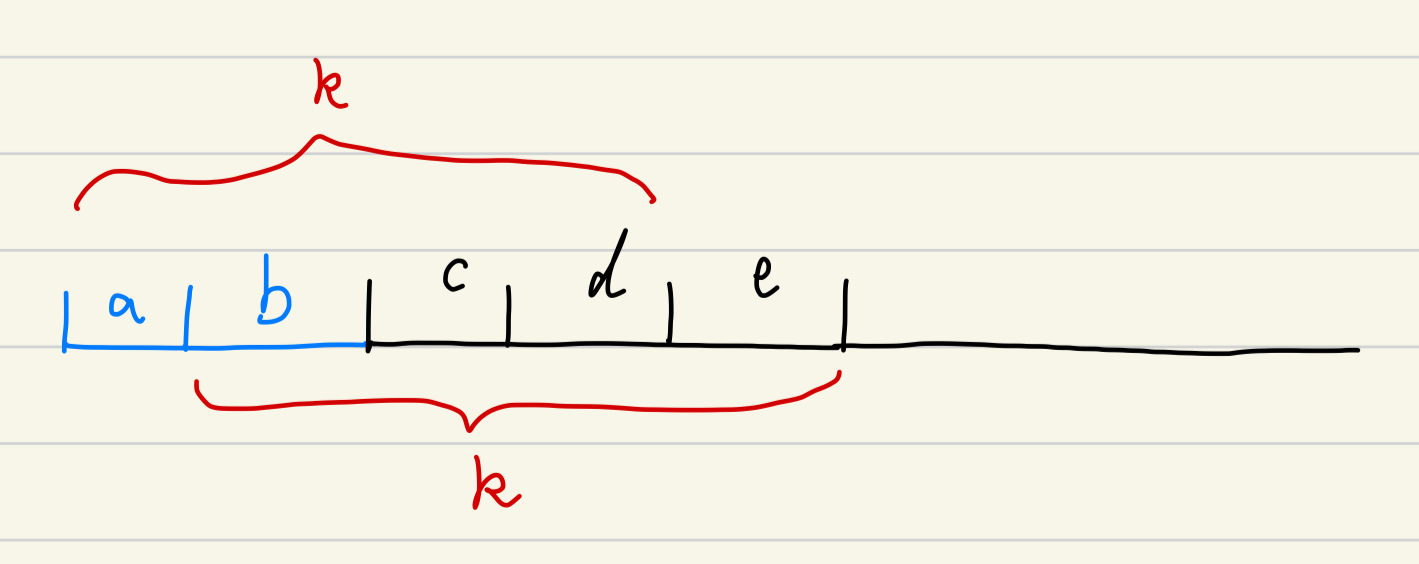 k
a b c d e
k